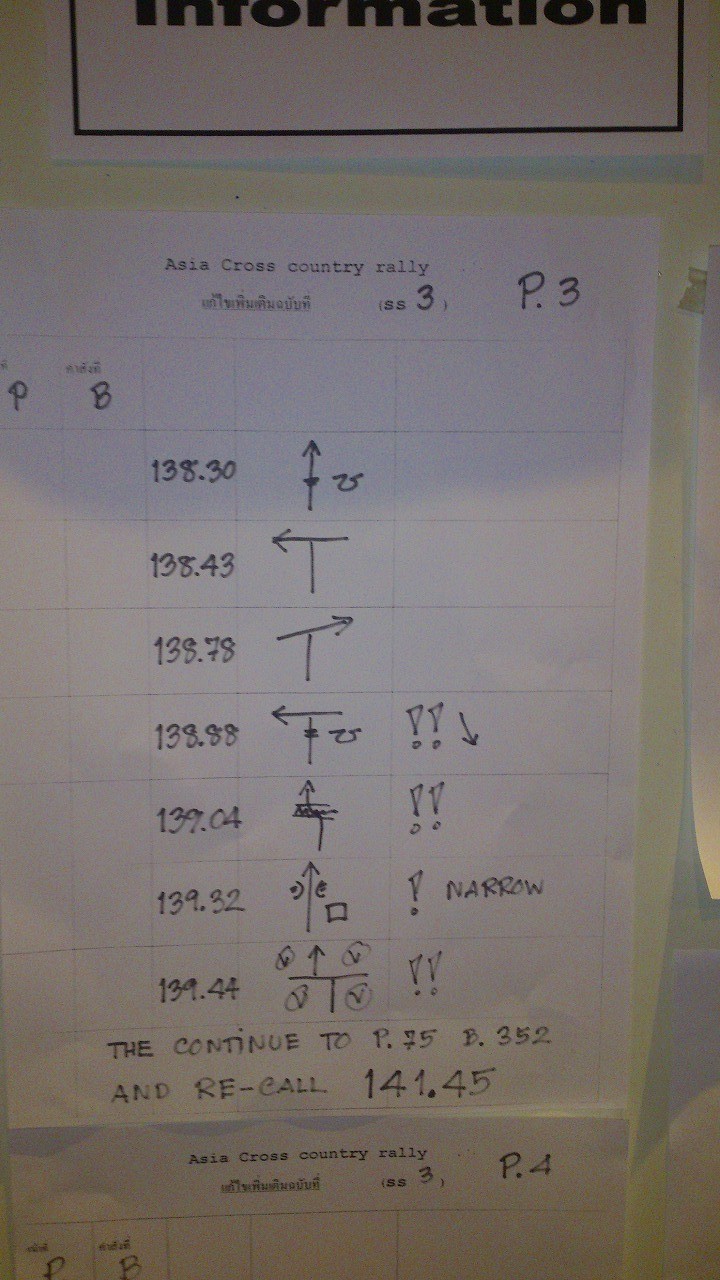 Information
Asia Cross country rally
แก้ไขเพิ่มเติมฉบับที่ (SS 3) P. 3
ที่ คำสั่งที่
P B
138.30
138.43
138.78
138.88 !!
139.04 !!
139.32 ! NARROW
139.44 !!
THE CONTINUE TO P. 75 B. 352
AND RE-CALL 141.45
Asia Cross country rally
แก้ไขเพิ่มเติมฉบับที่ (SS 3) P. 4
หน้าที่ คำสั่งที่
P B